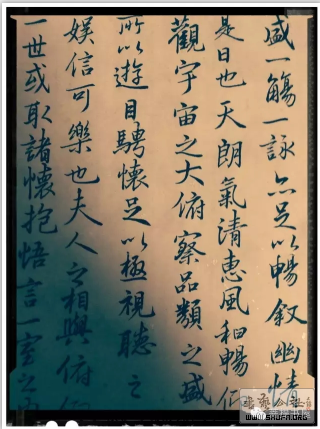 盛一觴一詠亦足以暢敘幽情
是日也天朗氣清惠風和暢仰
觀宇宙之大俯察品類之盛
所以遊目騁懷足以極視聽之
娛信可樂也夫人之相與俯仰
一世或取諸懷抱悟言一室之內
WWW.SHUFA.ORG